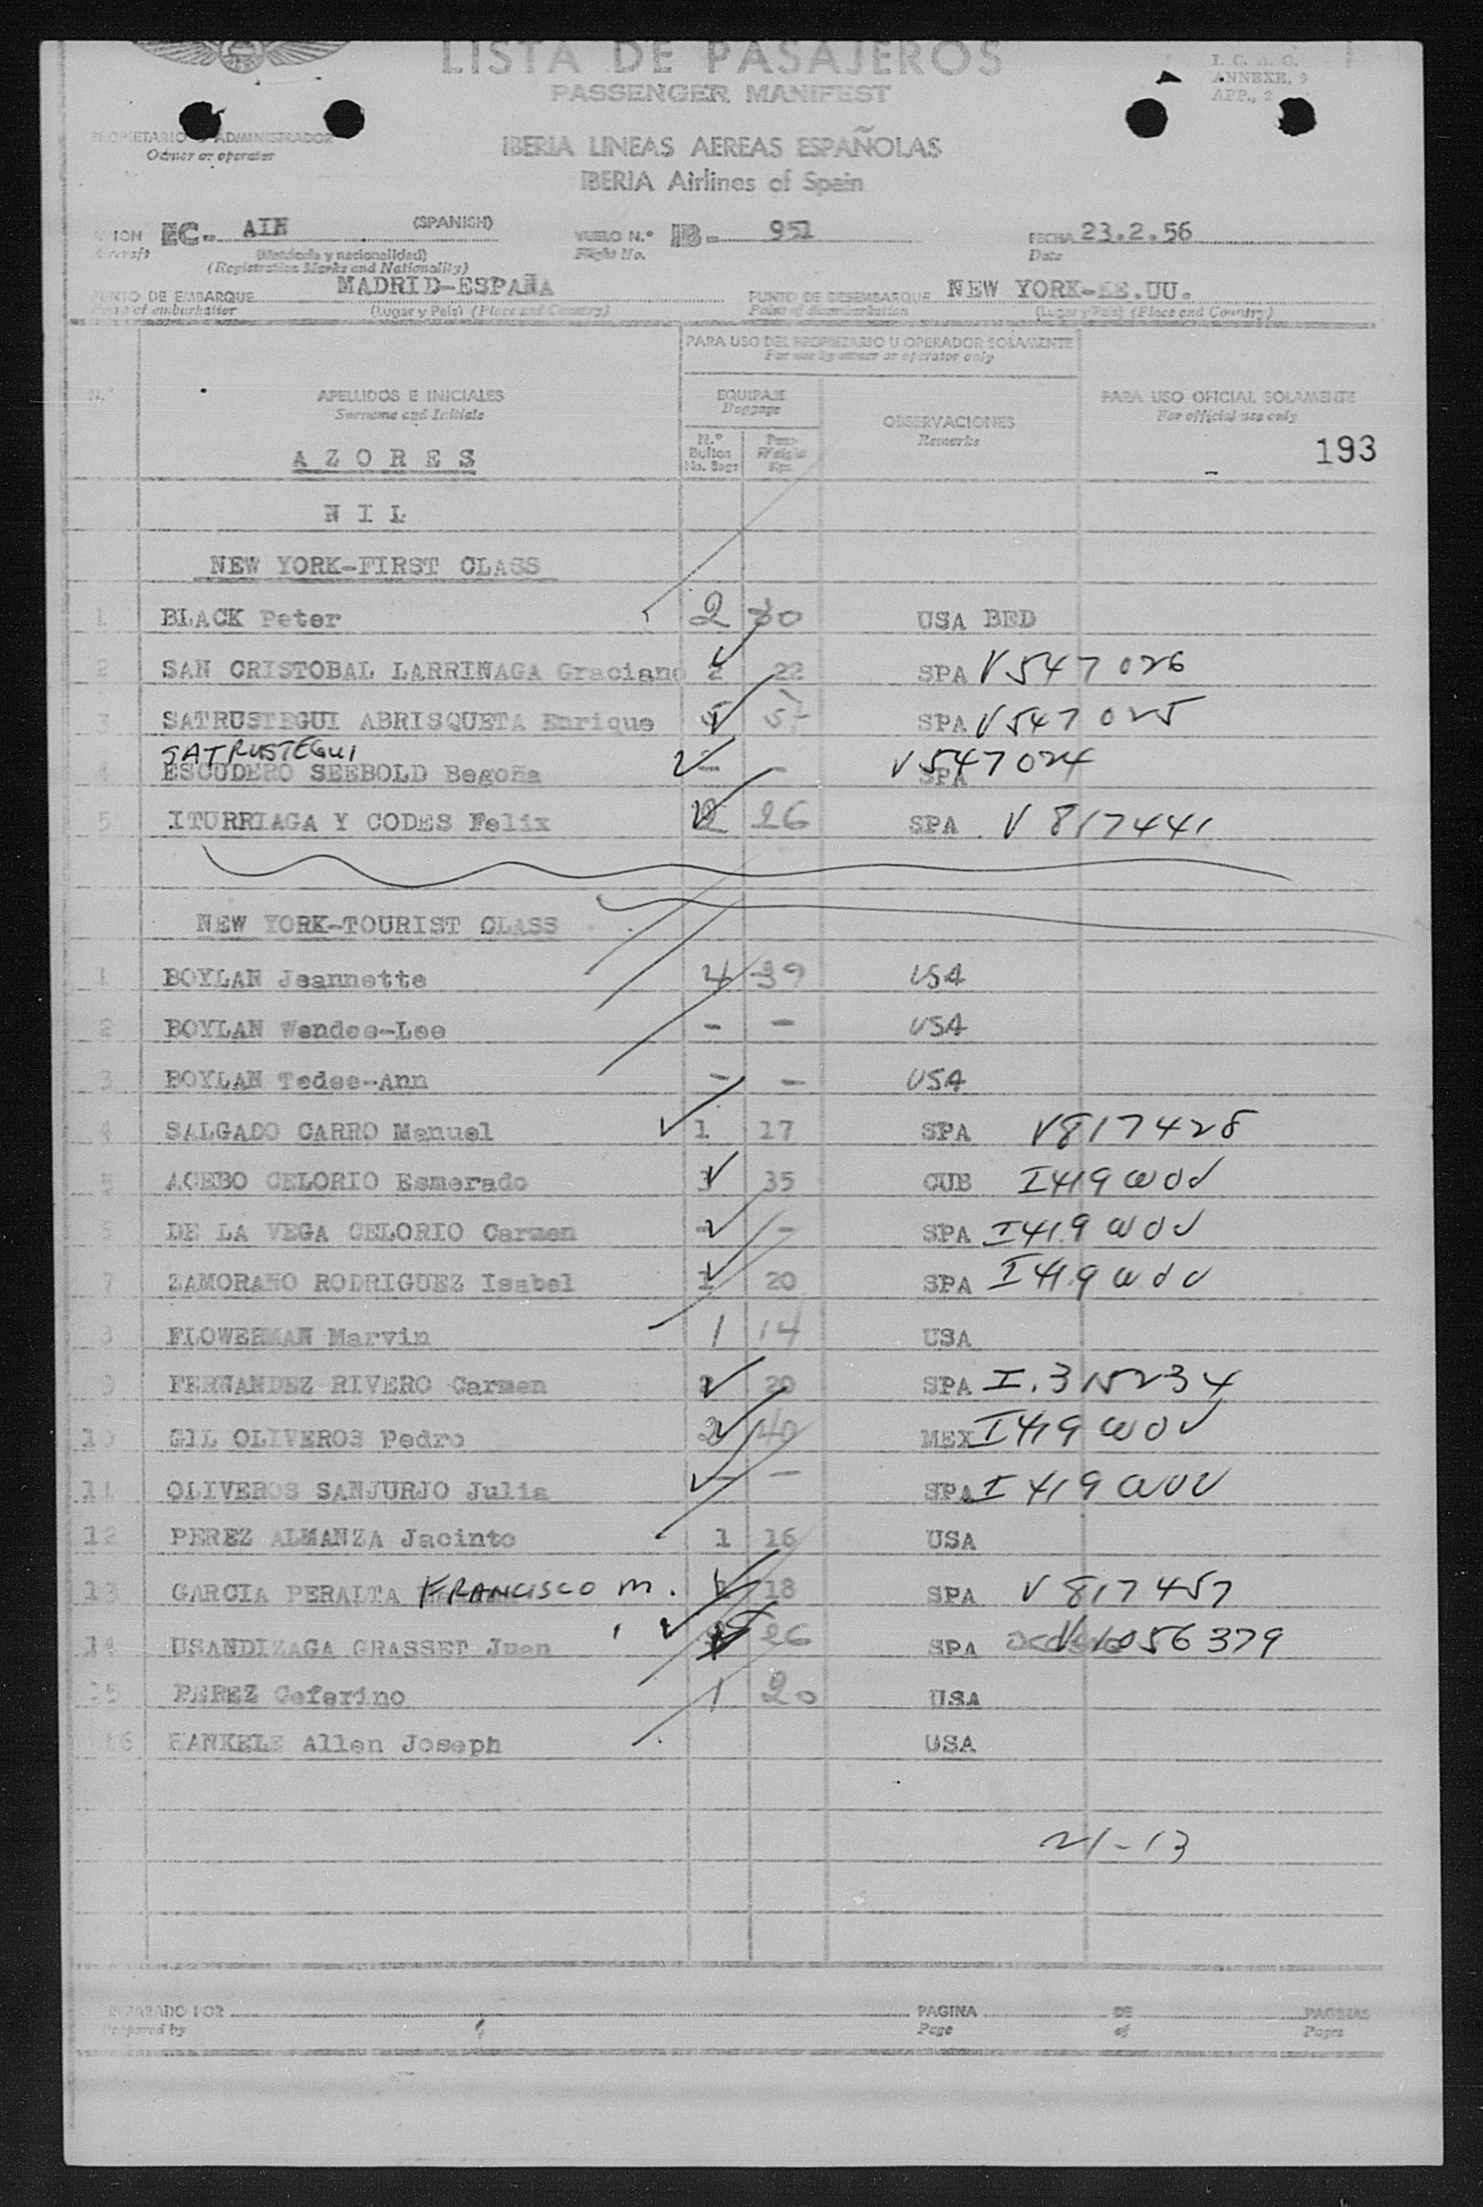 LISTA DE PASAJEROS
PASSENGER MANIFEST
I. C. A. O.
ANNEXE, 9
APP., 2
PROPIETARIO O ADMINISTRADOR
Owner or operator
IBERIA LINEAS AEREAS ESPAÑOLAS
IBERIA Airlines of Spain
EC- (SPANISH) VUELO N.º IB- 951 FECHA 23.2.56
Aircraft (Matrícula y nacionalidad) Flight No. Date
(Registration Marks and Nationality)
PUNTO DE EMBARQUE MADRID-ESPAÑA PUNTO DE DESEMBARQUE NEW YORK-EE.UU.
(Lugar y País) (Place and Country) Point of disembarkation (Lugar y País) (Place and Country)
PARA USO DEL PROPIETARIO U OPERADOR SOLAMENTE
For use by owner or operator only
N.º APELLIDOS E INICIALES EQUIPAJE PARA USO OFICIAL SOLAMENTE
Surname and Initials Baggage OBSERVACIONES For official use only
Remarks
N.º Bultos No. Bags Peso Weight Kgs
193
A Z O R E S
N I L
NEW YORK-FIRST CLASS
1 BLACK Peter 2 30 USA BED
2 SAN CRISTOBAL LARRINAGA Graciano 2 22 SPA V547026
3 SATRUSTEGUI ABRISQUETA Enrique 5 57 SPA V547025
SATRUSTEGUI
4 ESCUDERO SEEBOLD Begoña - - SPA V547024
5 ITURRIAGA Y CODES Felix 2 26 SPA V817441
NEW YORK-TOURIST CLASS
1 BOYLAN Jeannette 4 39 USA
2 BOYLAN Wendee-Lee - - USA
3 BOYLAN Tedee-Ann - - USA
4 SALGADO CARRO Manuel 1 17 SPA V817428
5 ACEBO CELORIO Esmerado 3 35 CUB I419 WOV
6 DE LA VEGA CELORIO Carmen - - SPA I419 WOV
7 ZAMORANO RODRIGUEZ Isabel 1 20 SPA I419 WOV
8 FLOWERMAN Marvin 1 14 USA
9 FERNANDEZ RIVERO Carmen 2 20 SPA I.315234
10 GIL OLIVEROS Pedro 2 40 MEX I419 WOV
11 OLIVEROS SANJURJO Julia - - SPA I419 WOV
12 PEREZ ALMANZA Jacinto 1 16 USA
13 GARCIA PERALTA FRANCISCO M. 18 SPA V817457
14 USANDIZAGA GRASSET Juan 26 SPA V1056379
15 PEREZ Ceferino 1 20 USA
16 HANKELE Allen Joseph USA
21-13
PREPARADO POR PAGINA DE PAGINAS
Prepared by Page of Pages